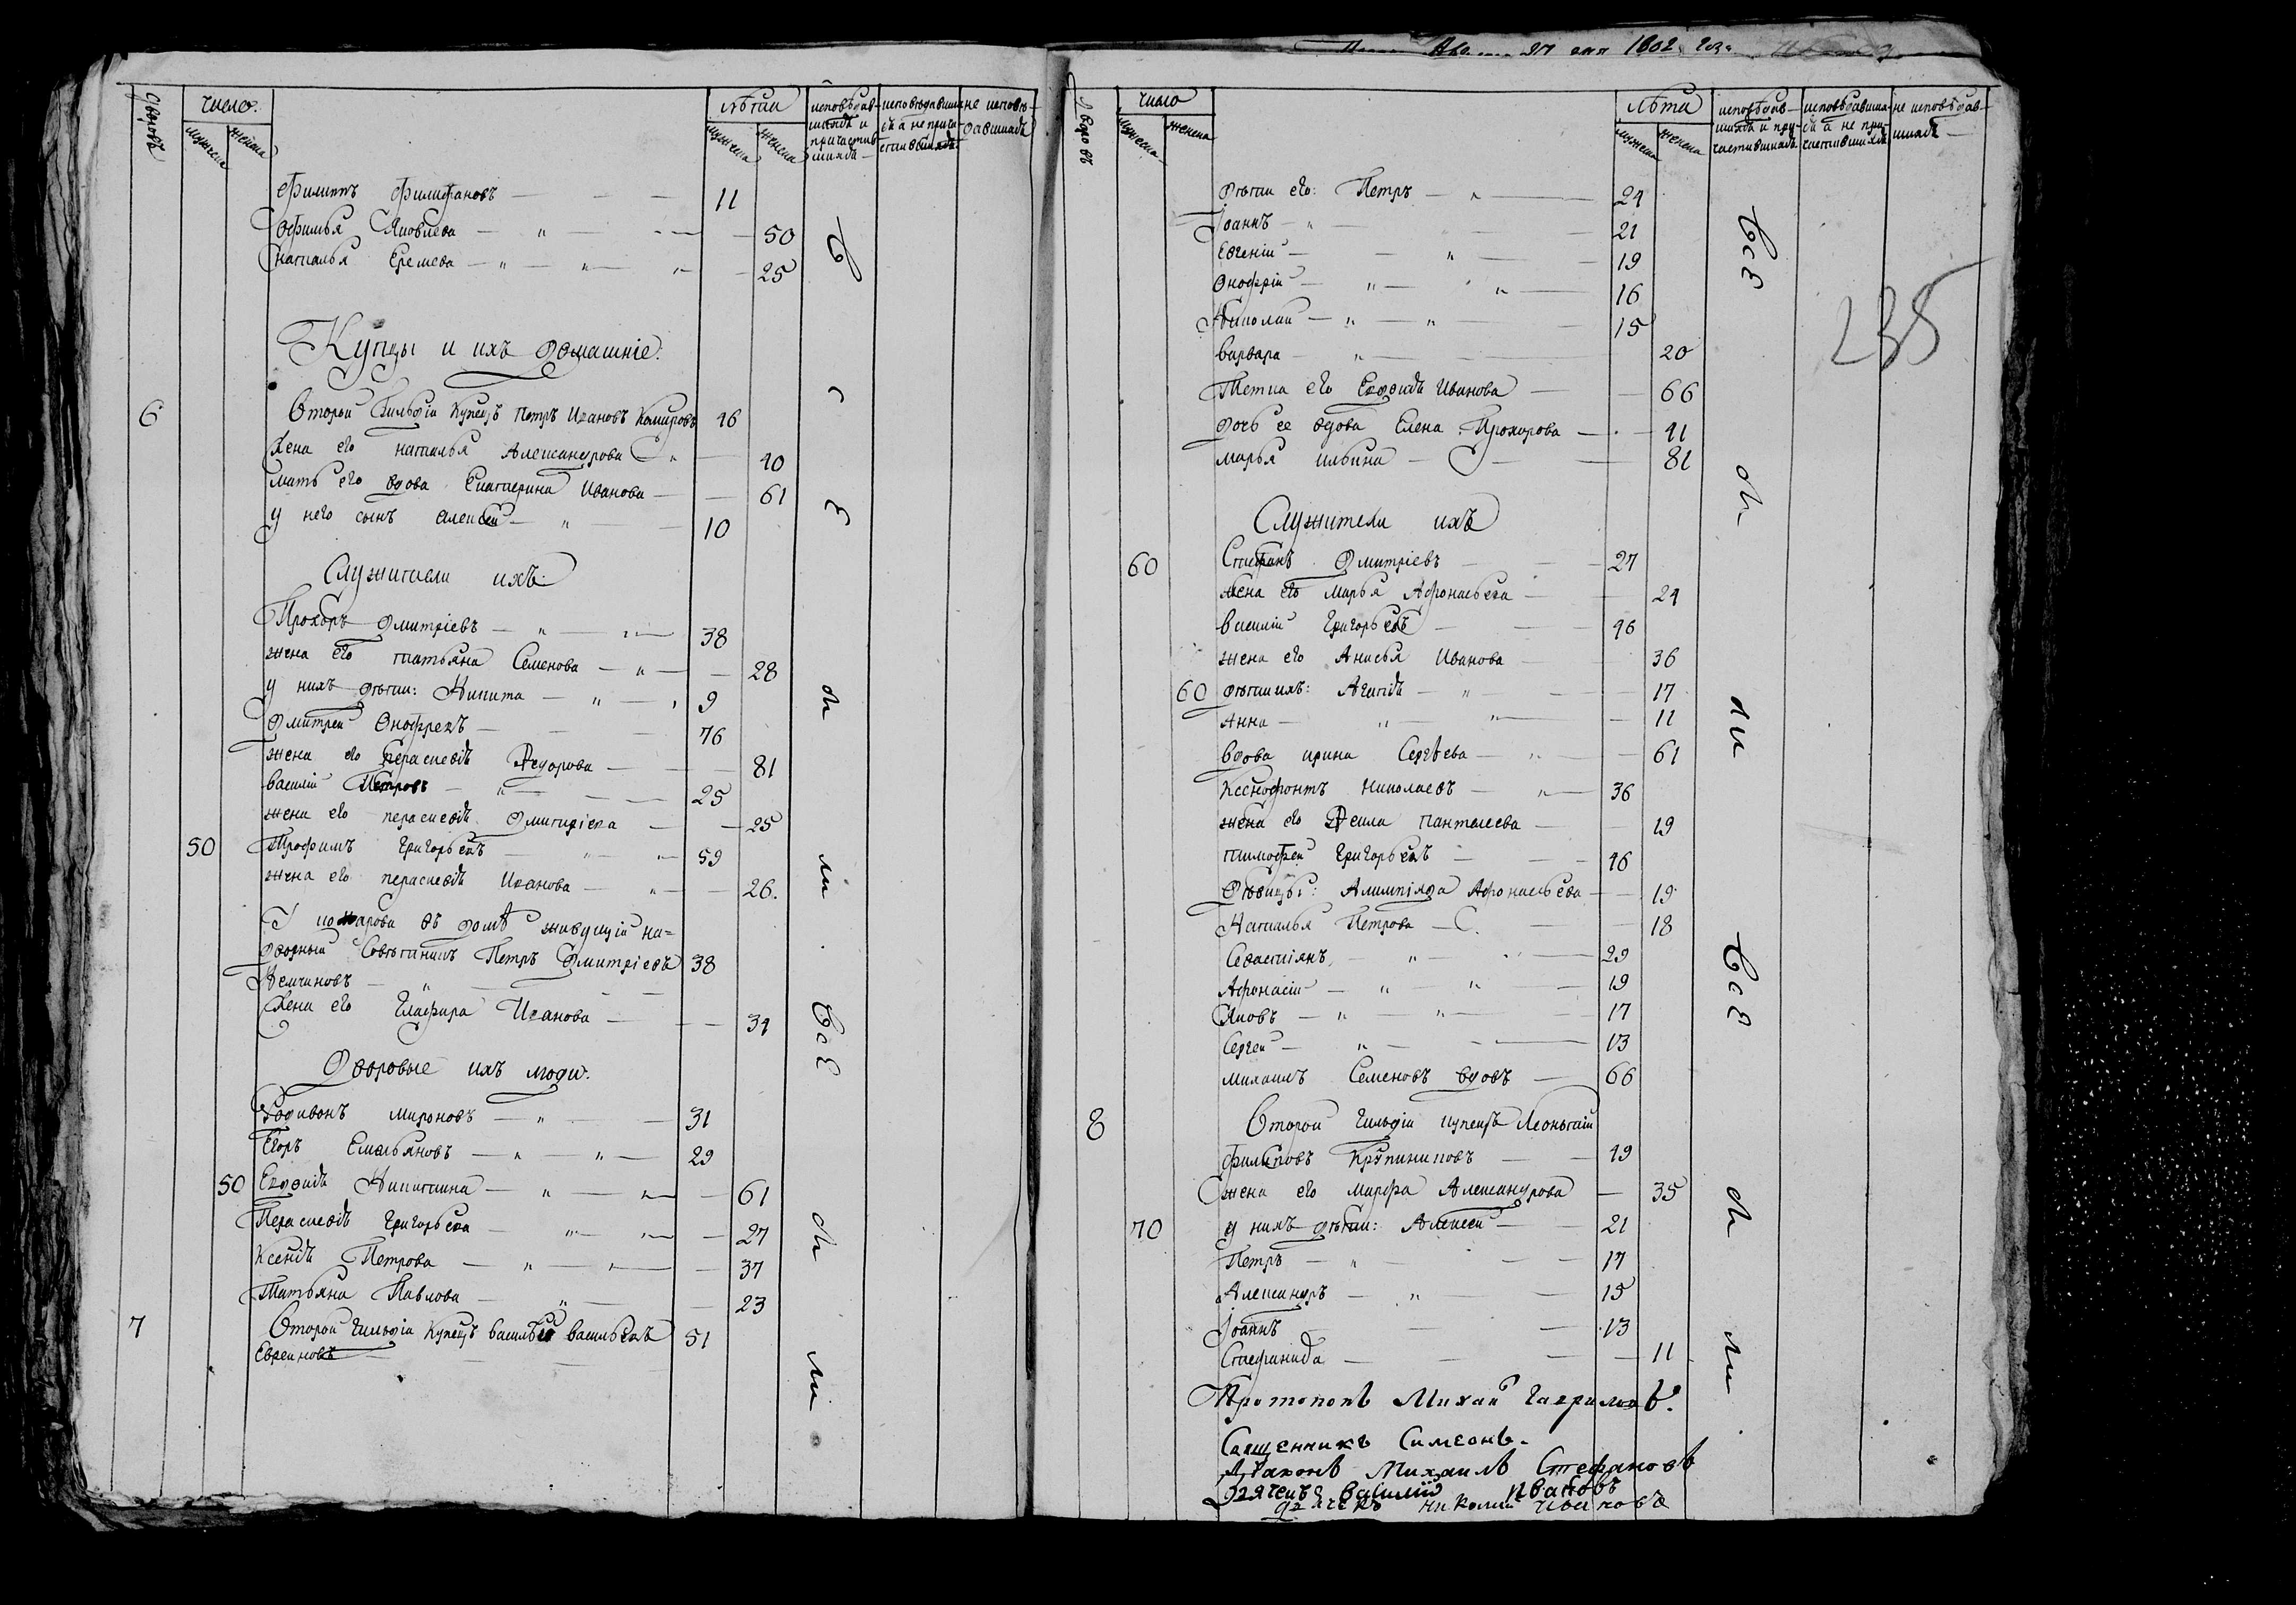 дворовъ
число.
мужеска
женска
лѣта
мужеска
женска
исповѣдав-
шихся и
причастив
шихся
исповѣдавших
ся а не прича
стившихся
не исповѣ-
давшихся
Филиппъ Филифановъ 11
Офимья Яковлева 50
Наталья Еремева 25
Купцы и ихъ домашніе.
6 Второй Гильдіи Купецъ Петръ Ивановъ 46
Жена его наталья Александрова 40
мать его вдова Екатерина Иванова 61
у него сынъ Алексей 10
Служители ихъ.
Прохоръ Дмитріевъ 38
жена его татьяна Семенова 28
у нихъ дѣти: Никита 9
Дмитрей Онофревъ 76
жена его Пераскевія Ѳедорова 81
василий Петровъ 25
жена его пераскевія Дмитріева 25
50 Трофимъ Григорьевъ 59
жена его пераскевія Иванова 26.
У въ домѣ живущій на=
дворный Совѣтникъ Петръ Дмитріевъ 38
Немчиновъ
Жена его Глафира Иванова 34
Дворовые ихъ люди.
Родивонъ мироновъ 31
Егоръ Емельяновъ 29
50 Евдокія Никитина 61
Пераскевія Григорьева 27
Ксенія Петрова 37
Татьяна Павлова 23
7 Второй гильдіи Купецъ василей васильевъ 51
Евреиновъ
всѣ
были
всѣ
были
1802 года
дворовъ
число
мужеска
женска
лѣта
мужеска
женска
исповѣдав-
шихся и при-
частившихся
исповѣдавших-
ся а не при-
частившихся
не исповѣдав-
шихся
235
дѣти его: Петръ 24
Іоаннъ 21
Евгеній 19
Онофрій 16
Николай 15
варвара 20
Тетка его Евдокія Иванова 66
дочь ее вдова Елена Прохорова 41
марья ильина 81
Служители ихъ
60 Стефанъ Дмитріевъ 27
жена его марья Афонасьева 24
василий Григорьевъ 46
жена его Анисья Иванова 36
60 дѣти ихъ: Агапія 17
Анна 11
вдова ирина Сергѣева 61
Ксенофонтъ николаевъ 36
жена его Ѳекла пантелеева 19
тимофей Григорьевъ 46
Дѣвицы: Алимпіяда Афонасьева 19
Наталья Петрова 18
Севастіянъ 29
Афонасій 19
Яковъ 17
Сергей 13
михаилъ Семеновъ вдовъ 66
8 Второй гильдіи купецъ Леонтій
филиповъ 49
жена его марфа Александрова 35
70 у нихъ дѣти: Алексей 21
Петръ 17
Александръ 15
Іоаннъ 13
Стефанида 11
всѣ
были
всѣ
были
Протопопъ Михаил Гавриловъ.
Священникъ Симеонъ.
Діаконъ Михаилъ Стефановъ
Дьячекъ Василий Ивановъ
Дьячекъ Николай Ивановъ